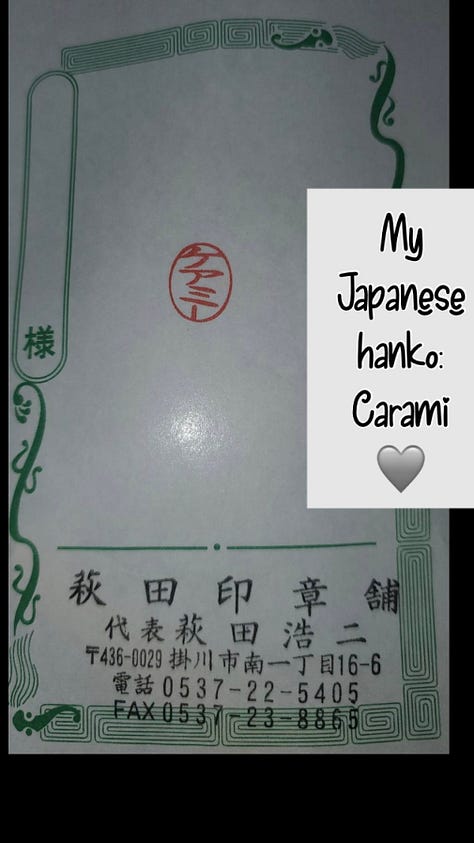 My
Japanese
hanko:
Carami
🩶
ケアミー
様
萩田印章舗
代表萩田浩二
〒436-0029 掛川市南一丁目16-6
電話0537-22-5405
FAX0537-23-8865